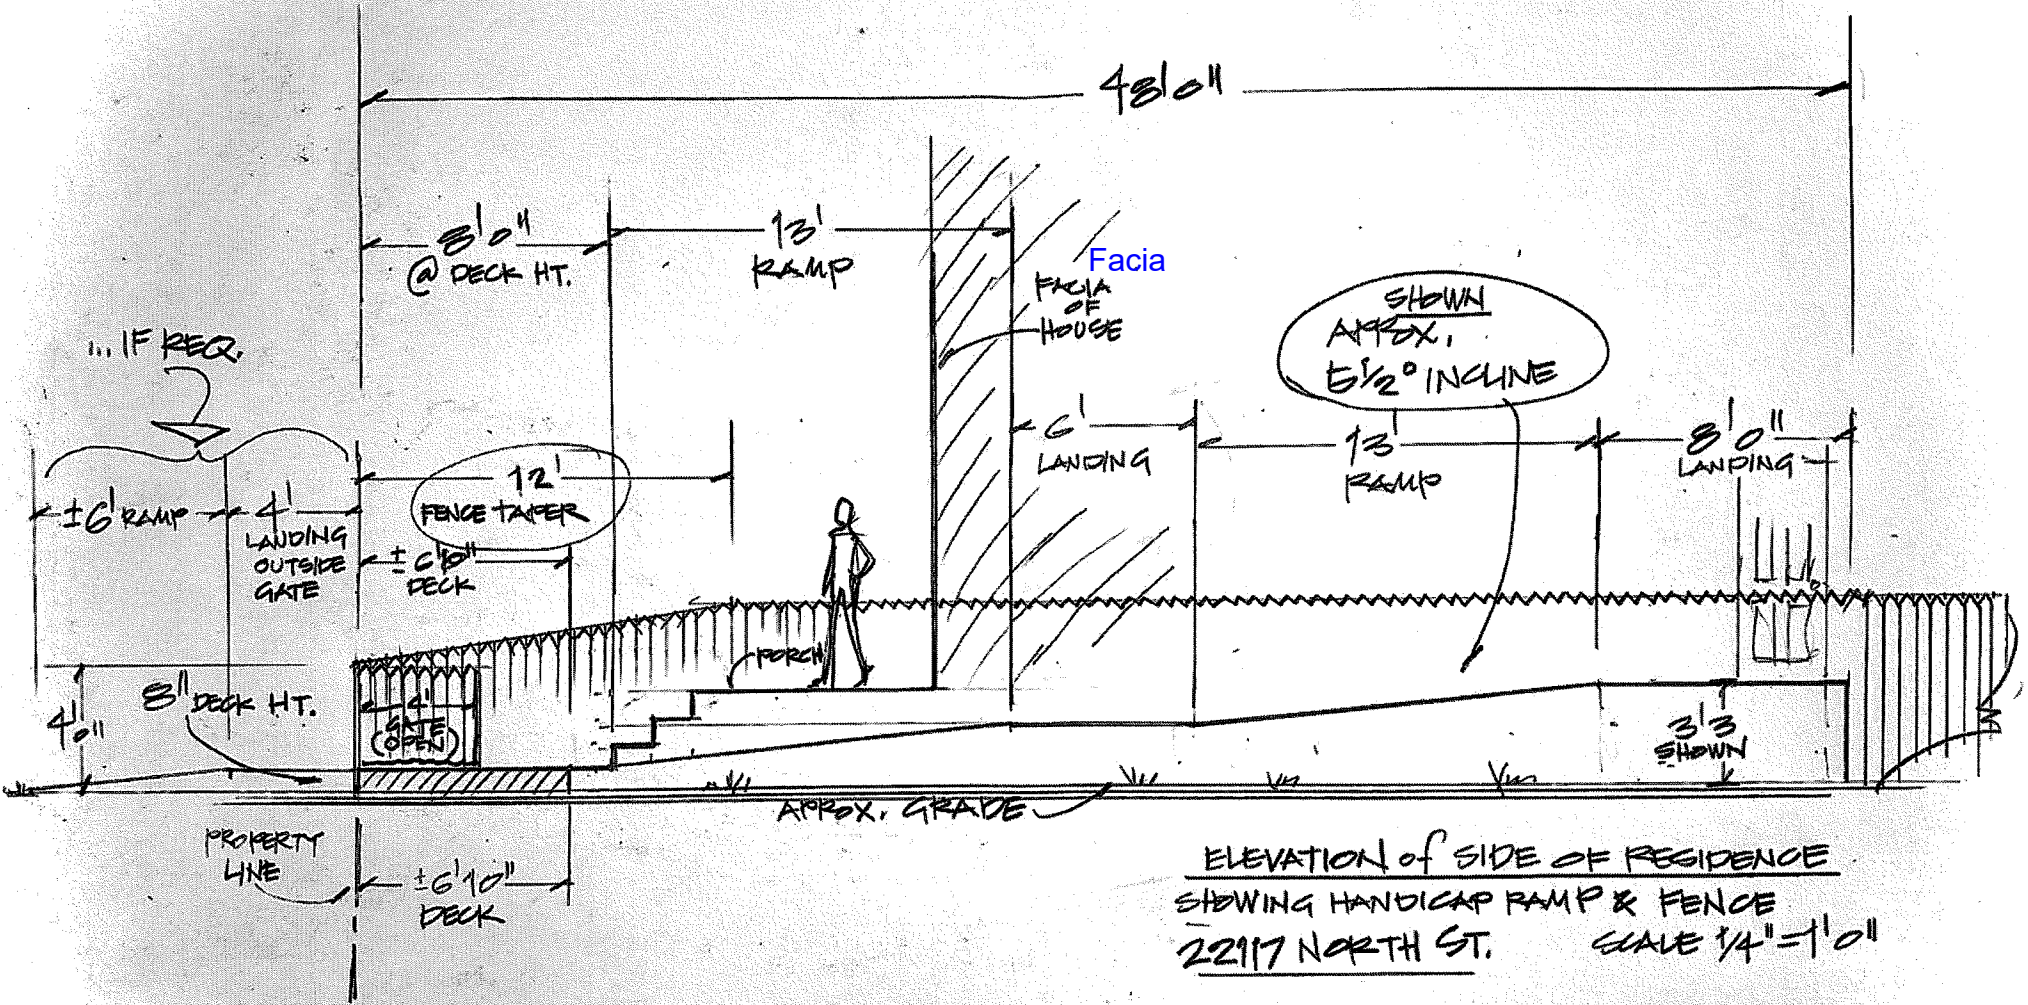 48'0"
8'0"
@ DECK HT.
13'
RAMP
Facia
FACIA
OF
HOUSE
SHOWN
APROX.
5 1/2° INCLINE
... IF REQ.
±6' RAMP
4'
LANDING
OUTSIDE
GATE
12'
FENCE TAPER
± 6'10"
DECK
6'
LANDING
13'
RAMP
8'0"
LANDING
PORCH
4'0"
8" DECK HT.
4'
GATE
(OPEN)
3'3
SHOWN
APROX. GRADE
PROPERTY
LINE
±6'10"
DECK
ELEVATION of SIDE OF RESIDENCE
SHOWING HANDICAP RAMP & FENCE
22117 NORTH ST. SCALE 1/4"=1'0"